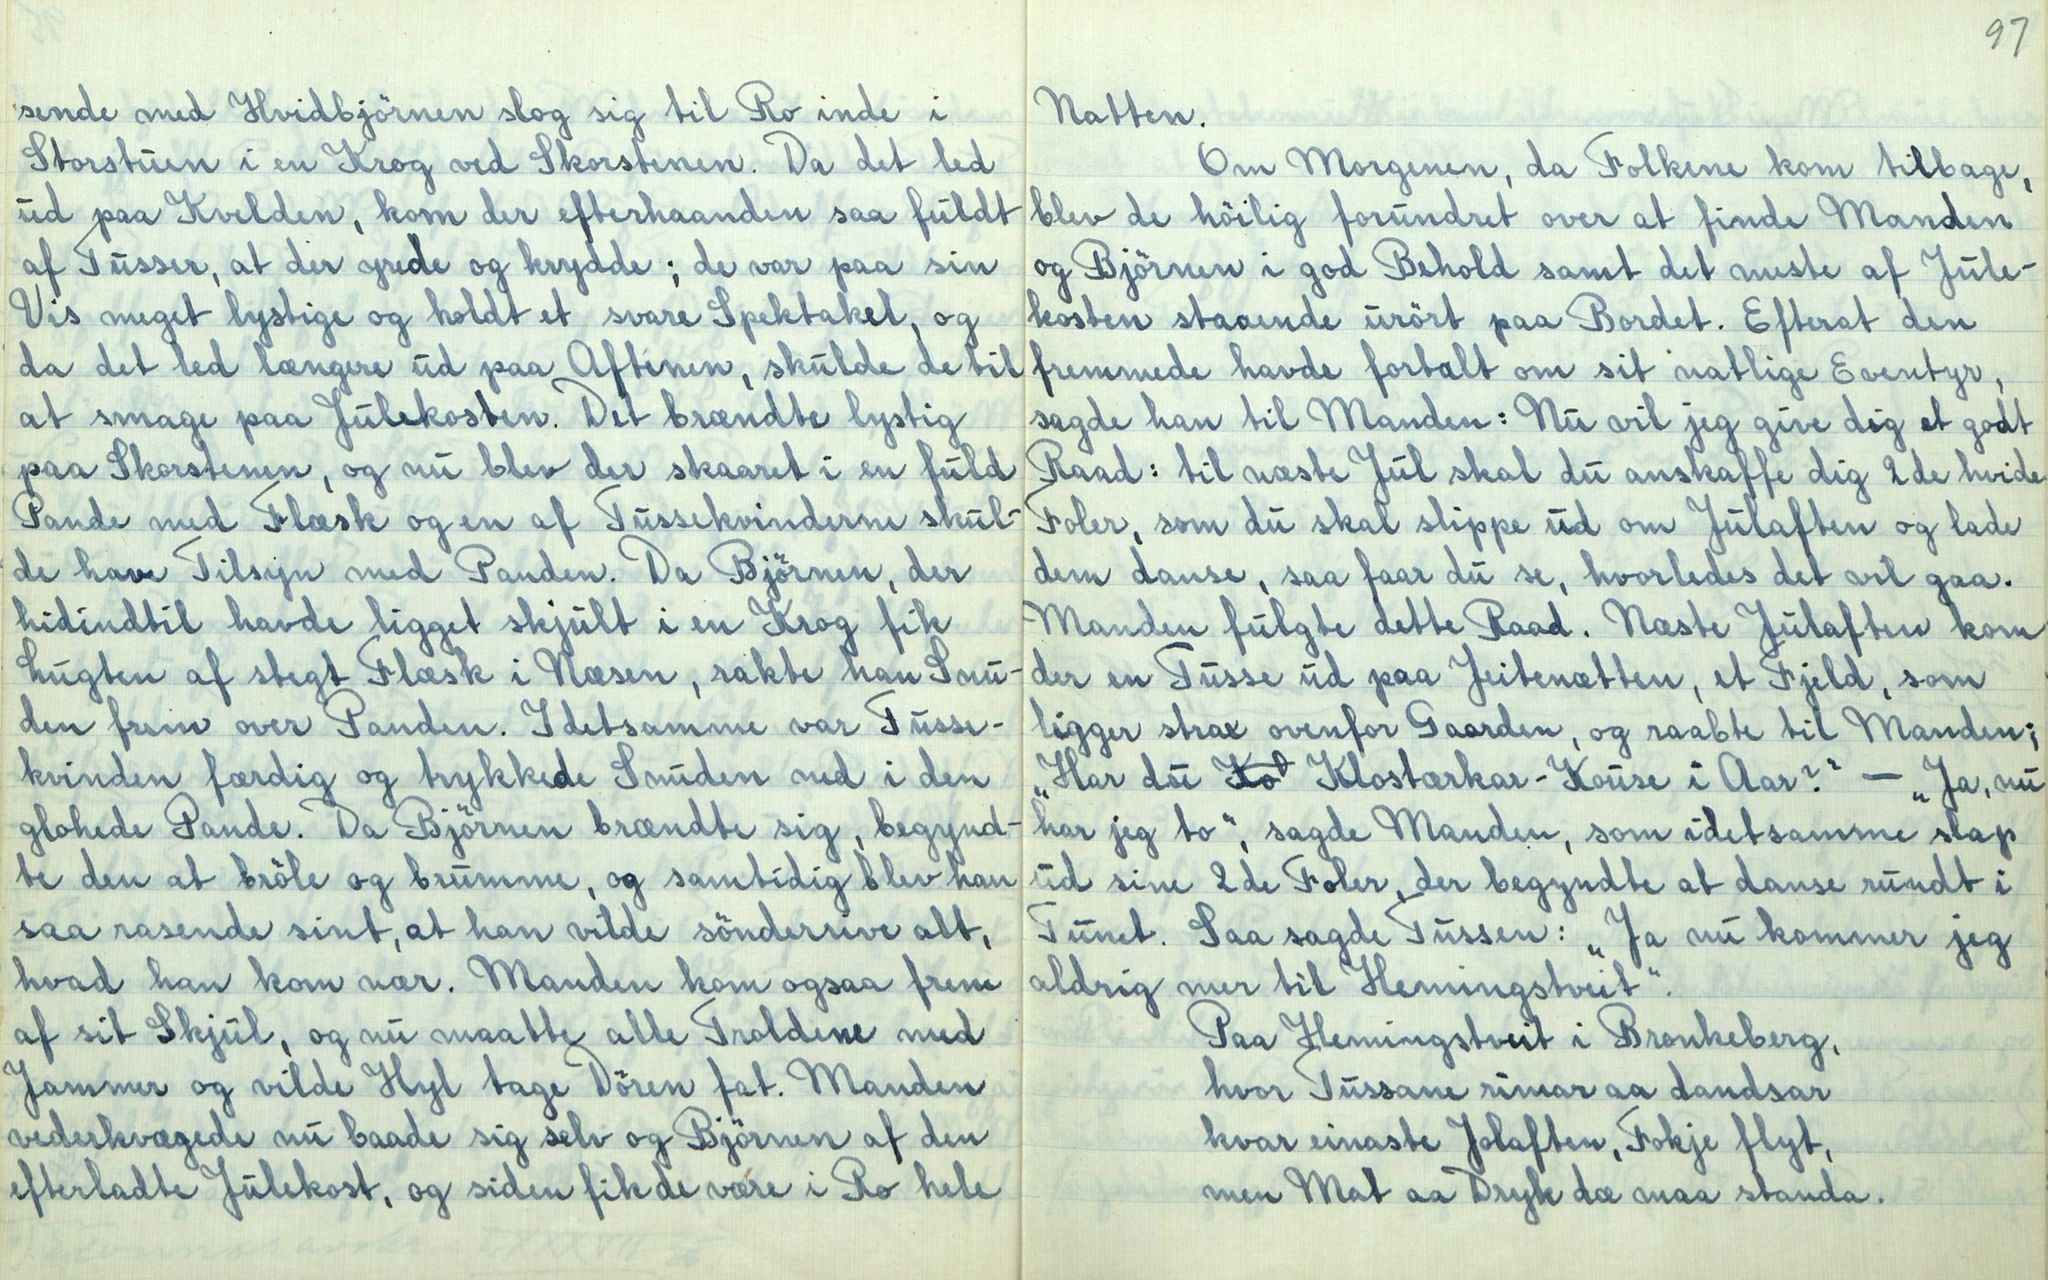 sende med Hvidbjörnen slog sig til Ro inde i
Storstuen i en Krog ved Skorstenen. Da det led
ud paa Kvelden, kom der efterhaanden saa fuldt
af Tusser, at der yrede og krydde; de var paa sin
Vis meget lystige og holdt et svare Spektakel, og
da det led længere ud paa Aftenen, skulde de til
at smage paa Julekosten. Det brændte lystig
paa Skorstenen, og nu blev der skaaret i en fuld
Pande med Flæsk og en af Tussekvinderne skul-
de have Tilsyn med Panden. Da Björnen, der
hidindtil havde ligget skjult i en Krog fik
Lugten af stegt Flæsk i Næsen, rakte han Snu-
den frem over Panden. Idetsamme var Tusse-
kvinden færdig og trykkede Snuden ned i den
glohede Pande. Da Björnen brændte sig, begynd-
te den at bröle og brumme, og samtidig blev han
saa rasende sint, at han vilde sönderrive alt,
hvad han kom nær. Manden kom ogsaa frem
af sit Skjul, og nu maatte alle Troldene med
Jammer og vilde Hyl tage Dören fat. Manden
vederkvægede nu baade sig selv og Björnen af den
efterladte Julekost, og siden fik de være i Ro hele
97
Natten.
Om Morgenen, da Folkene kom tilbage,
blev de höilig forundret over at finde Manden
og Björnen i god Behold samt det meste af Jule-
kosten staaende urört paa Bordet. Efterat den
fremmede havde fortalt om sit natlige Eventyr,
sagde han til Manden: Nu vil jeg give dig et godt
Raad: til næste Jul skal du anskaffe dig 2de hvide
Foler, som du skal slippe ud om Julaften og lade
dem danse, saa faar du se, hvorledes det vil gaa.
Manden fulgte dette Raad. Næste Julaften kom
der en Tusse ud paa Jeitenætten, et Fjeld, som
ligger strax ovenfor Gaarden, og raabte til Manden;
„Har du Klostærkar-Kouse i Aar?" — „Ja, nu
har jeg to", sagde Manden, som idetsamme slap
ud sine 2de Foler, der begyndte at danse rundt i
Tunet. Saa sagde Tussen: „Ja nu kommer jeg
aldrig mer til Hemingstveit".
Paa Hemingstveit i Brunkeberg,
hvor Tussane rimar aa dandsar
kvar einaste Jolaften, Fokje flyt,
men Mat aa Dryk dæ maa standa.